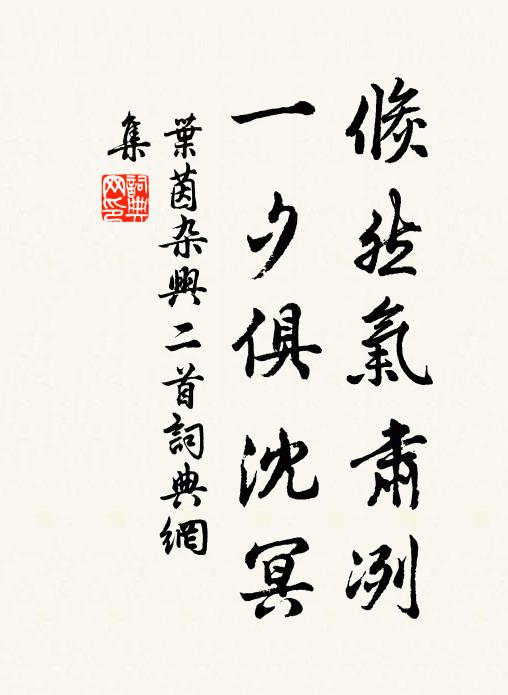 倏然氣肅冽
一夕俱沈冥
葉茵杂興二首詞典網
集
詞典网印